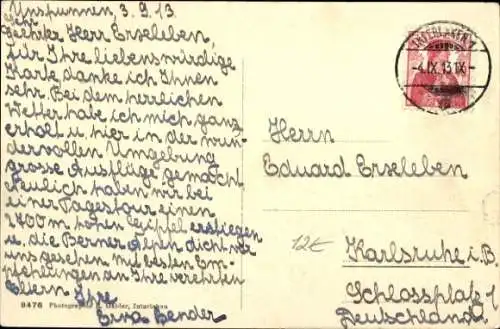 Unspunnen, 3.9.13.
Sehr
geehrter Herr Erseleben,
für Ihre liebenswürdige
Karte danke ich Ihnen
sehr. Bei dem herrlichen
Wetter habe ich mich ganz
erholt u. hier in der wun-
dervollen Umgebung
grosse Ausflüge gemacht.
Neulich haben wir bei
einer Tagestour einen
2700m hohen Gipfel erstiegen
u. die Berner Alpen dicht vor
uns gesehen. Mit besten Em-
pfehlungen an Ihre verehrten
Eltern Ihre
Erna Bender
9476 Photographie Gabler, Interlaken
INTERLAKEN 1
-4.IX.13.IX-
Herrn
Eduard Erseleben
12€
Karlsruhe i. B.
Schlossplatz 1
Deutschland